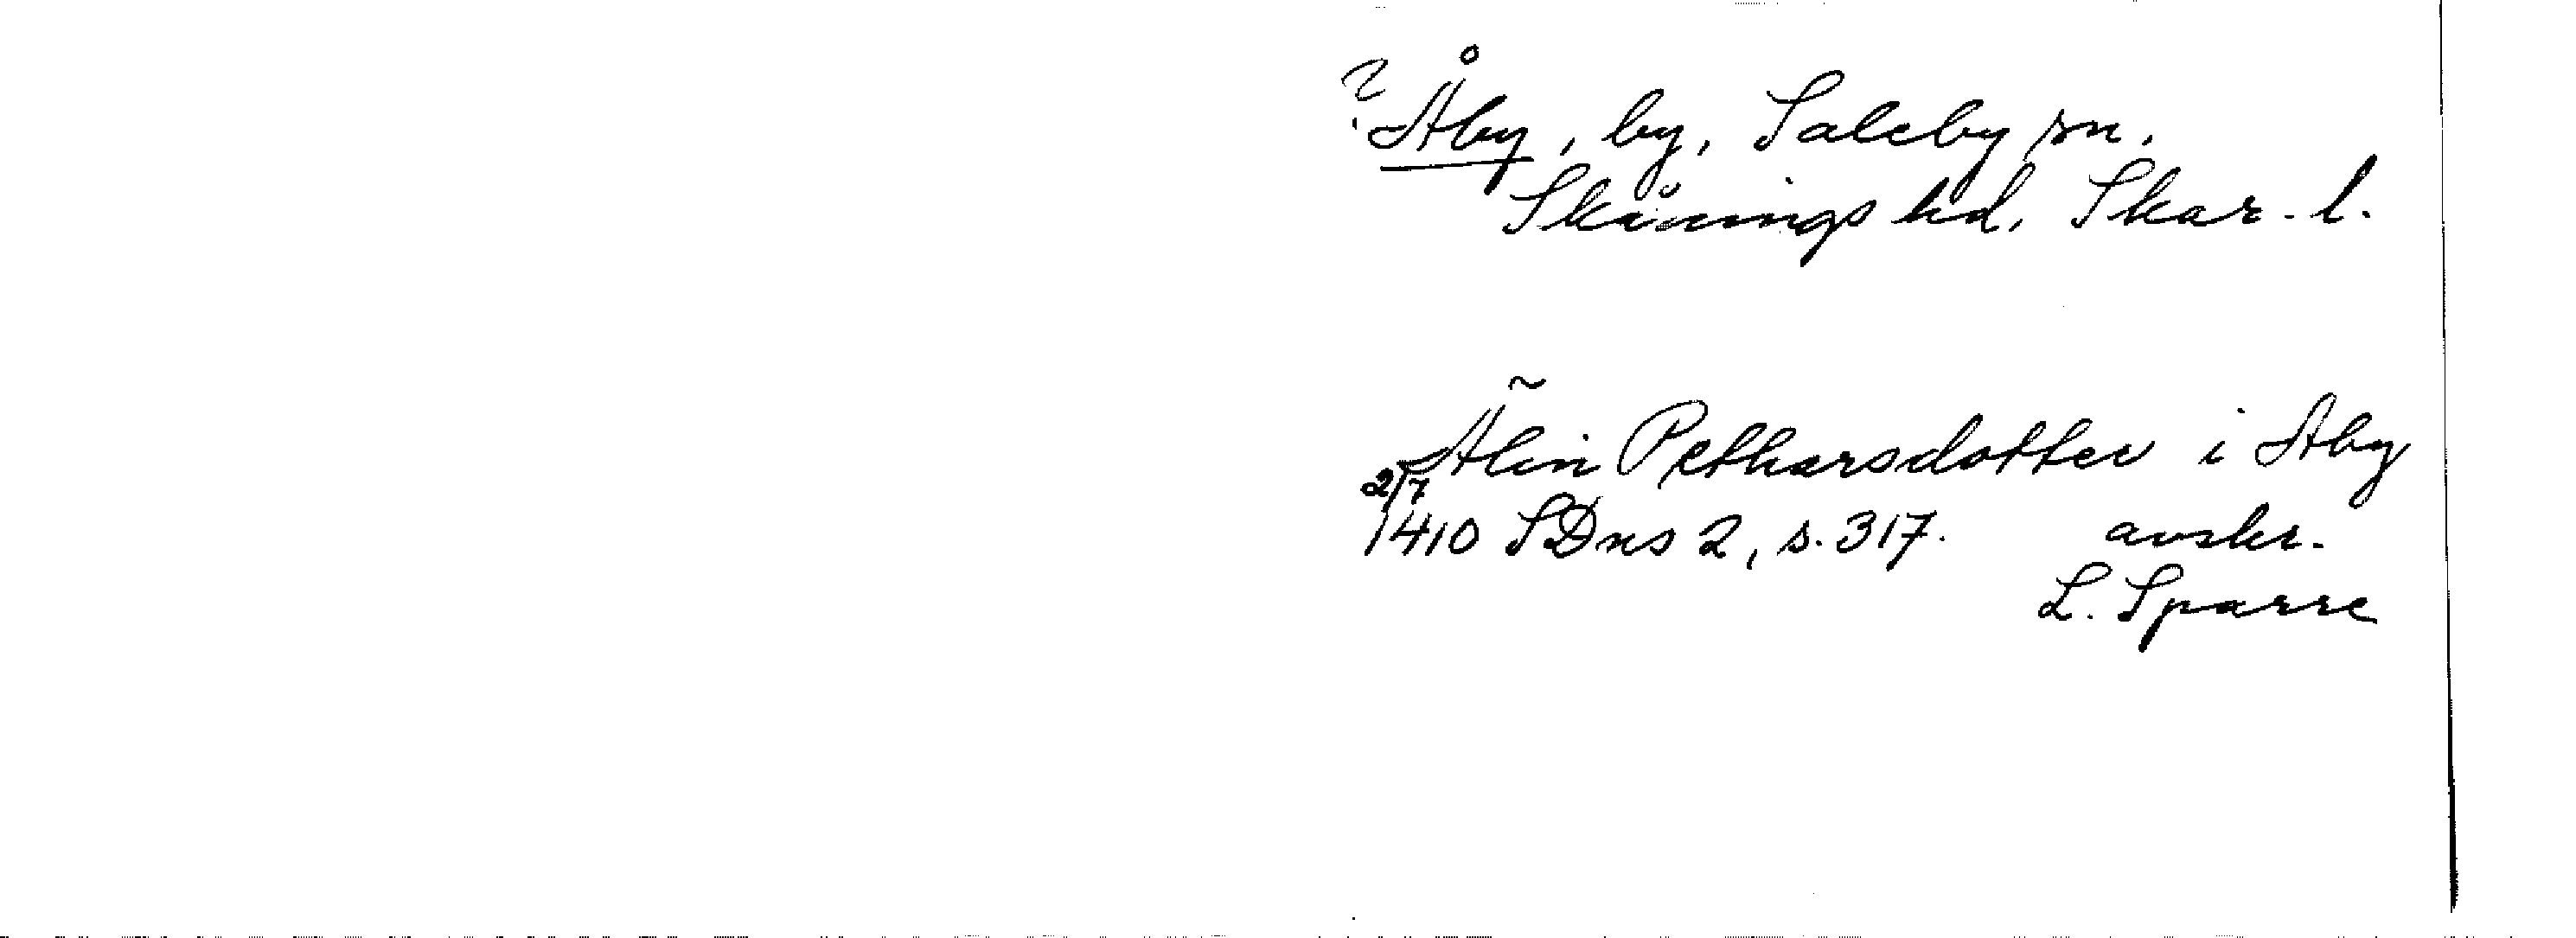 ? Åby, by, Saleby sn.
Skånings hd, Skar. l.
Älin Pethersdotter i Aby
2/7
1410 SDns 2, s. 317. avskr.
L. Sparre